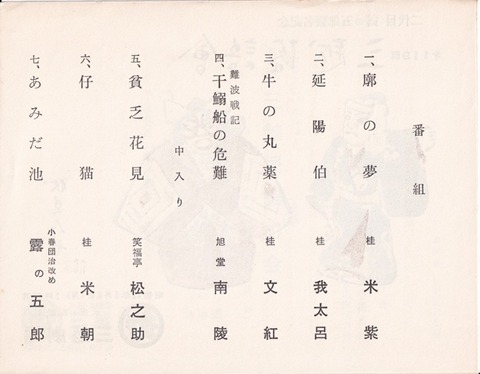 番組
一、廓の夢 桂 米紫
二、延陽伯 桂 我太呂
三、牛の丸薬 桂 文紅
難波戦記
四、干鰯船の危難 旭堂 南陵
中入り
五、貧乏花見 笑福亭 松之助
六、仔猫 桂 米朝
七、あみだ池 小春団治改め 露の五郎